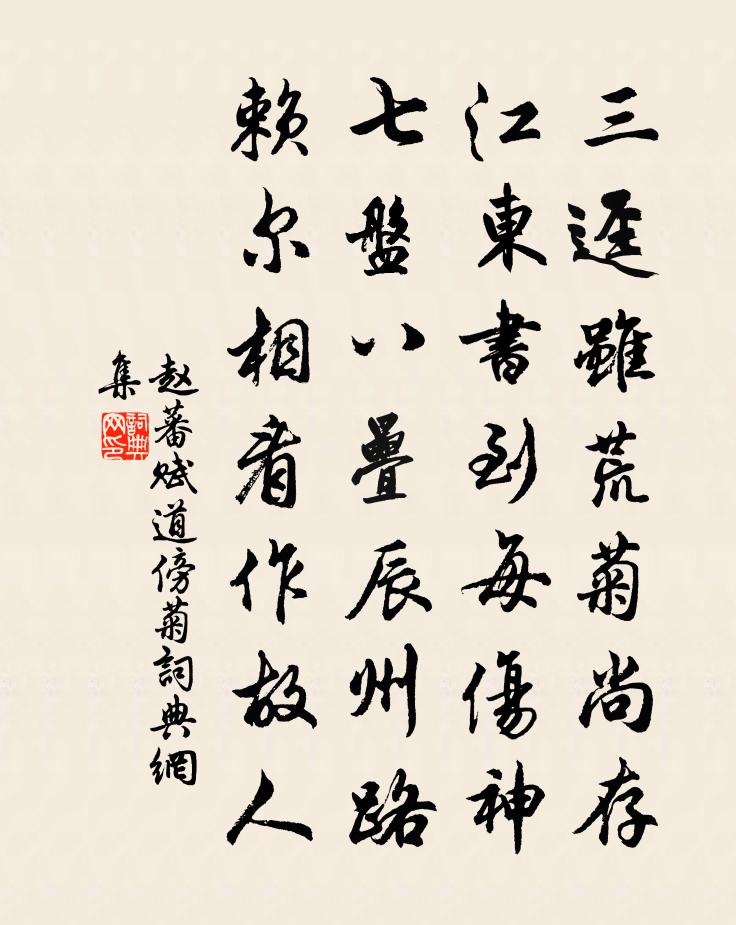 三逕雖荒菊尚存
江東書到每傷神
七盤八疊辰州路
賴尔相看作故人
赵蕃赋道傍菊詞典網
集
詞典
网印